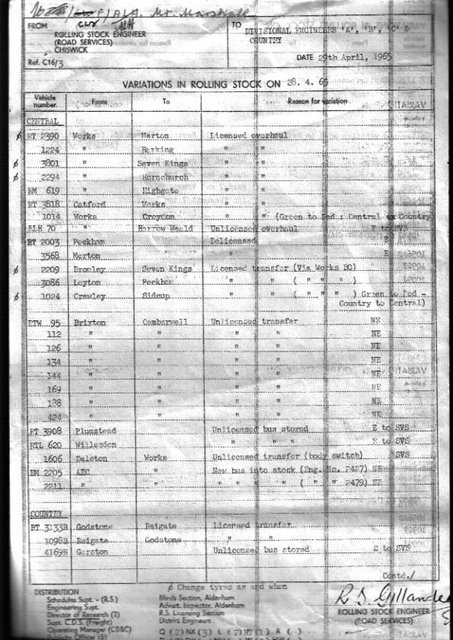 Mr. Marshall
FROM
ROLLING STOCK ENGINEER
(ROAD SERVICES)
CHISWICK
Ref. C16/3
TO
DIVISIONAL ENGINEERS 'A', 'B', 'C' &
COUNTRY
DATE 29th April, 1965
VARIATIONS IN ROLLING STOCK ON 28.4.65
Vehicle number From To Reason for variation
CENTRAL
ø RT 2390 Works Merton Licensed overhaul
1224 " Barking " "
ø 3801 " Seven Kings " "
ø 2294 " Hornchurch " "
RM 619 " Highgate " "
RT 3818 Catford Works " "
1014 Works Croydon " " (Green to Red : Central ex Country)
RLH 70 " Harrow Weald Unlicensed overhaul E to SVS
RT 2003 Peckham Delicensed E
3568 Merton " E
ø 2209 Bromley Seven Kings Licensed transfer (Via Works
3086 Leyton Peckham " " ( " " " )
ø 1024 Crawley Sidcup " " ( " " " ) Green to Red -
Country to Central)
RTW 95 Brixton Camberwell Unlicensed transfer NE
112 " " " " NE
126 " " " " NE
134 " " " " NE
144 " " " " NE
169 " " " " NE
188 " " " " NE
424 " " " " NE
RT 3908 Plumstead Unlicensed bus stored E to SVS
RTL 620 Willesden " " " E to SVS
1606 Dalston Works Unlicensed transfer (body switch) SVS
RM 2205 AEC New bus into stock (Eng. No. 2427) NE
2211 " " " " " ( " " 2479) NE
COUNTRY
RT 3133B Godstone Reigate Licensed transfer
1098B Reigate Godstone " "
4169B Garston Unlicensed bus stored E to SVS
Contd./
ø Change tyres as and when
DISTRIBUTION
Schedules Supt. - (R.S)
Engineering Supt.
Director of Research (2)
Supt. C.D.S. (Freight)
Operating Manager (CB&C)
Blinds Section, Aldenham
Advert. Inspector, Aldenham
R.S. Licensing Section
District Engineers
ROLLING STOCK ENGINEER
(ROAD SERVICES)